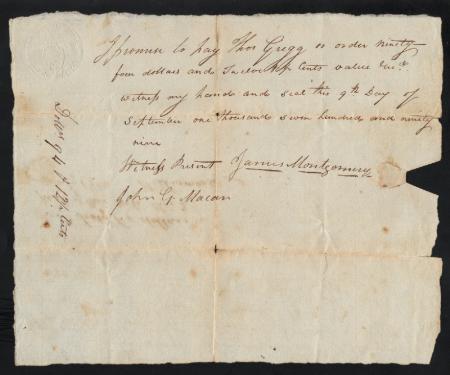 I promise to pay Thos Gregg or order ninety
four dollars and Twelve ½ Cents value Recd.
witness my hand and seal this 9th Day of
September one thousand seven hundred and ninety
nine
Witness Present James Montgomery
John G. Macan
94 12½ Cents